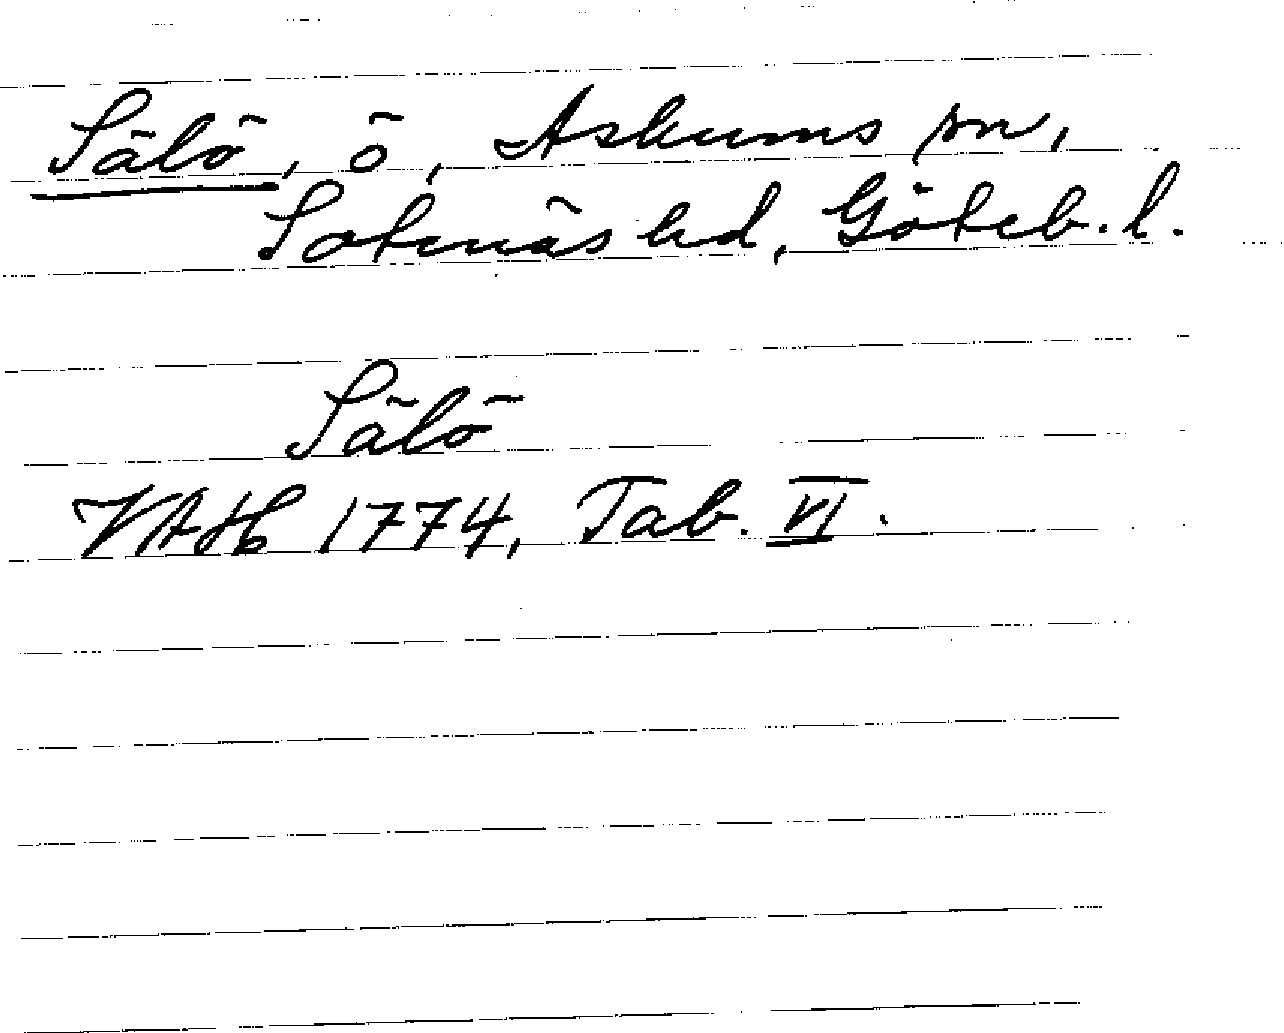 Sälö, ö, Askums sn,
Sotenäs hd, Göteb. l.
Sälö
VAH 1774, Tab. VI.